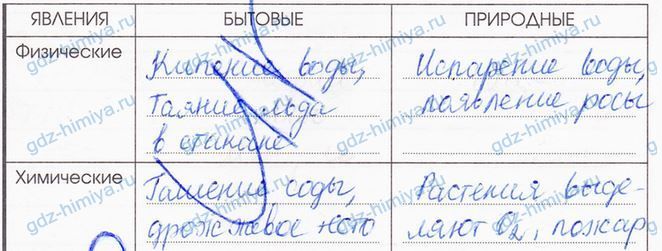 ЯВЛЕНИЯ БЫТОВЫЕ ПРИРОДНЫЕ
Физические Кипение воды, Испарение воды,
Таяние льда появление росы
в стакане
Химические Гашение соды, Растения выде-
дрожжевое тесто ляют O2, пожар
gdz-himiya.ru